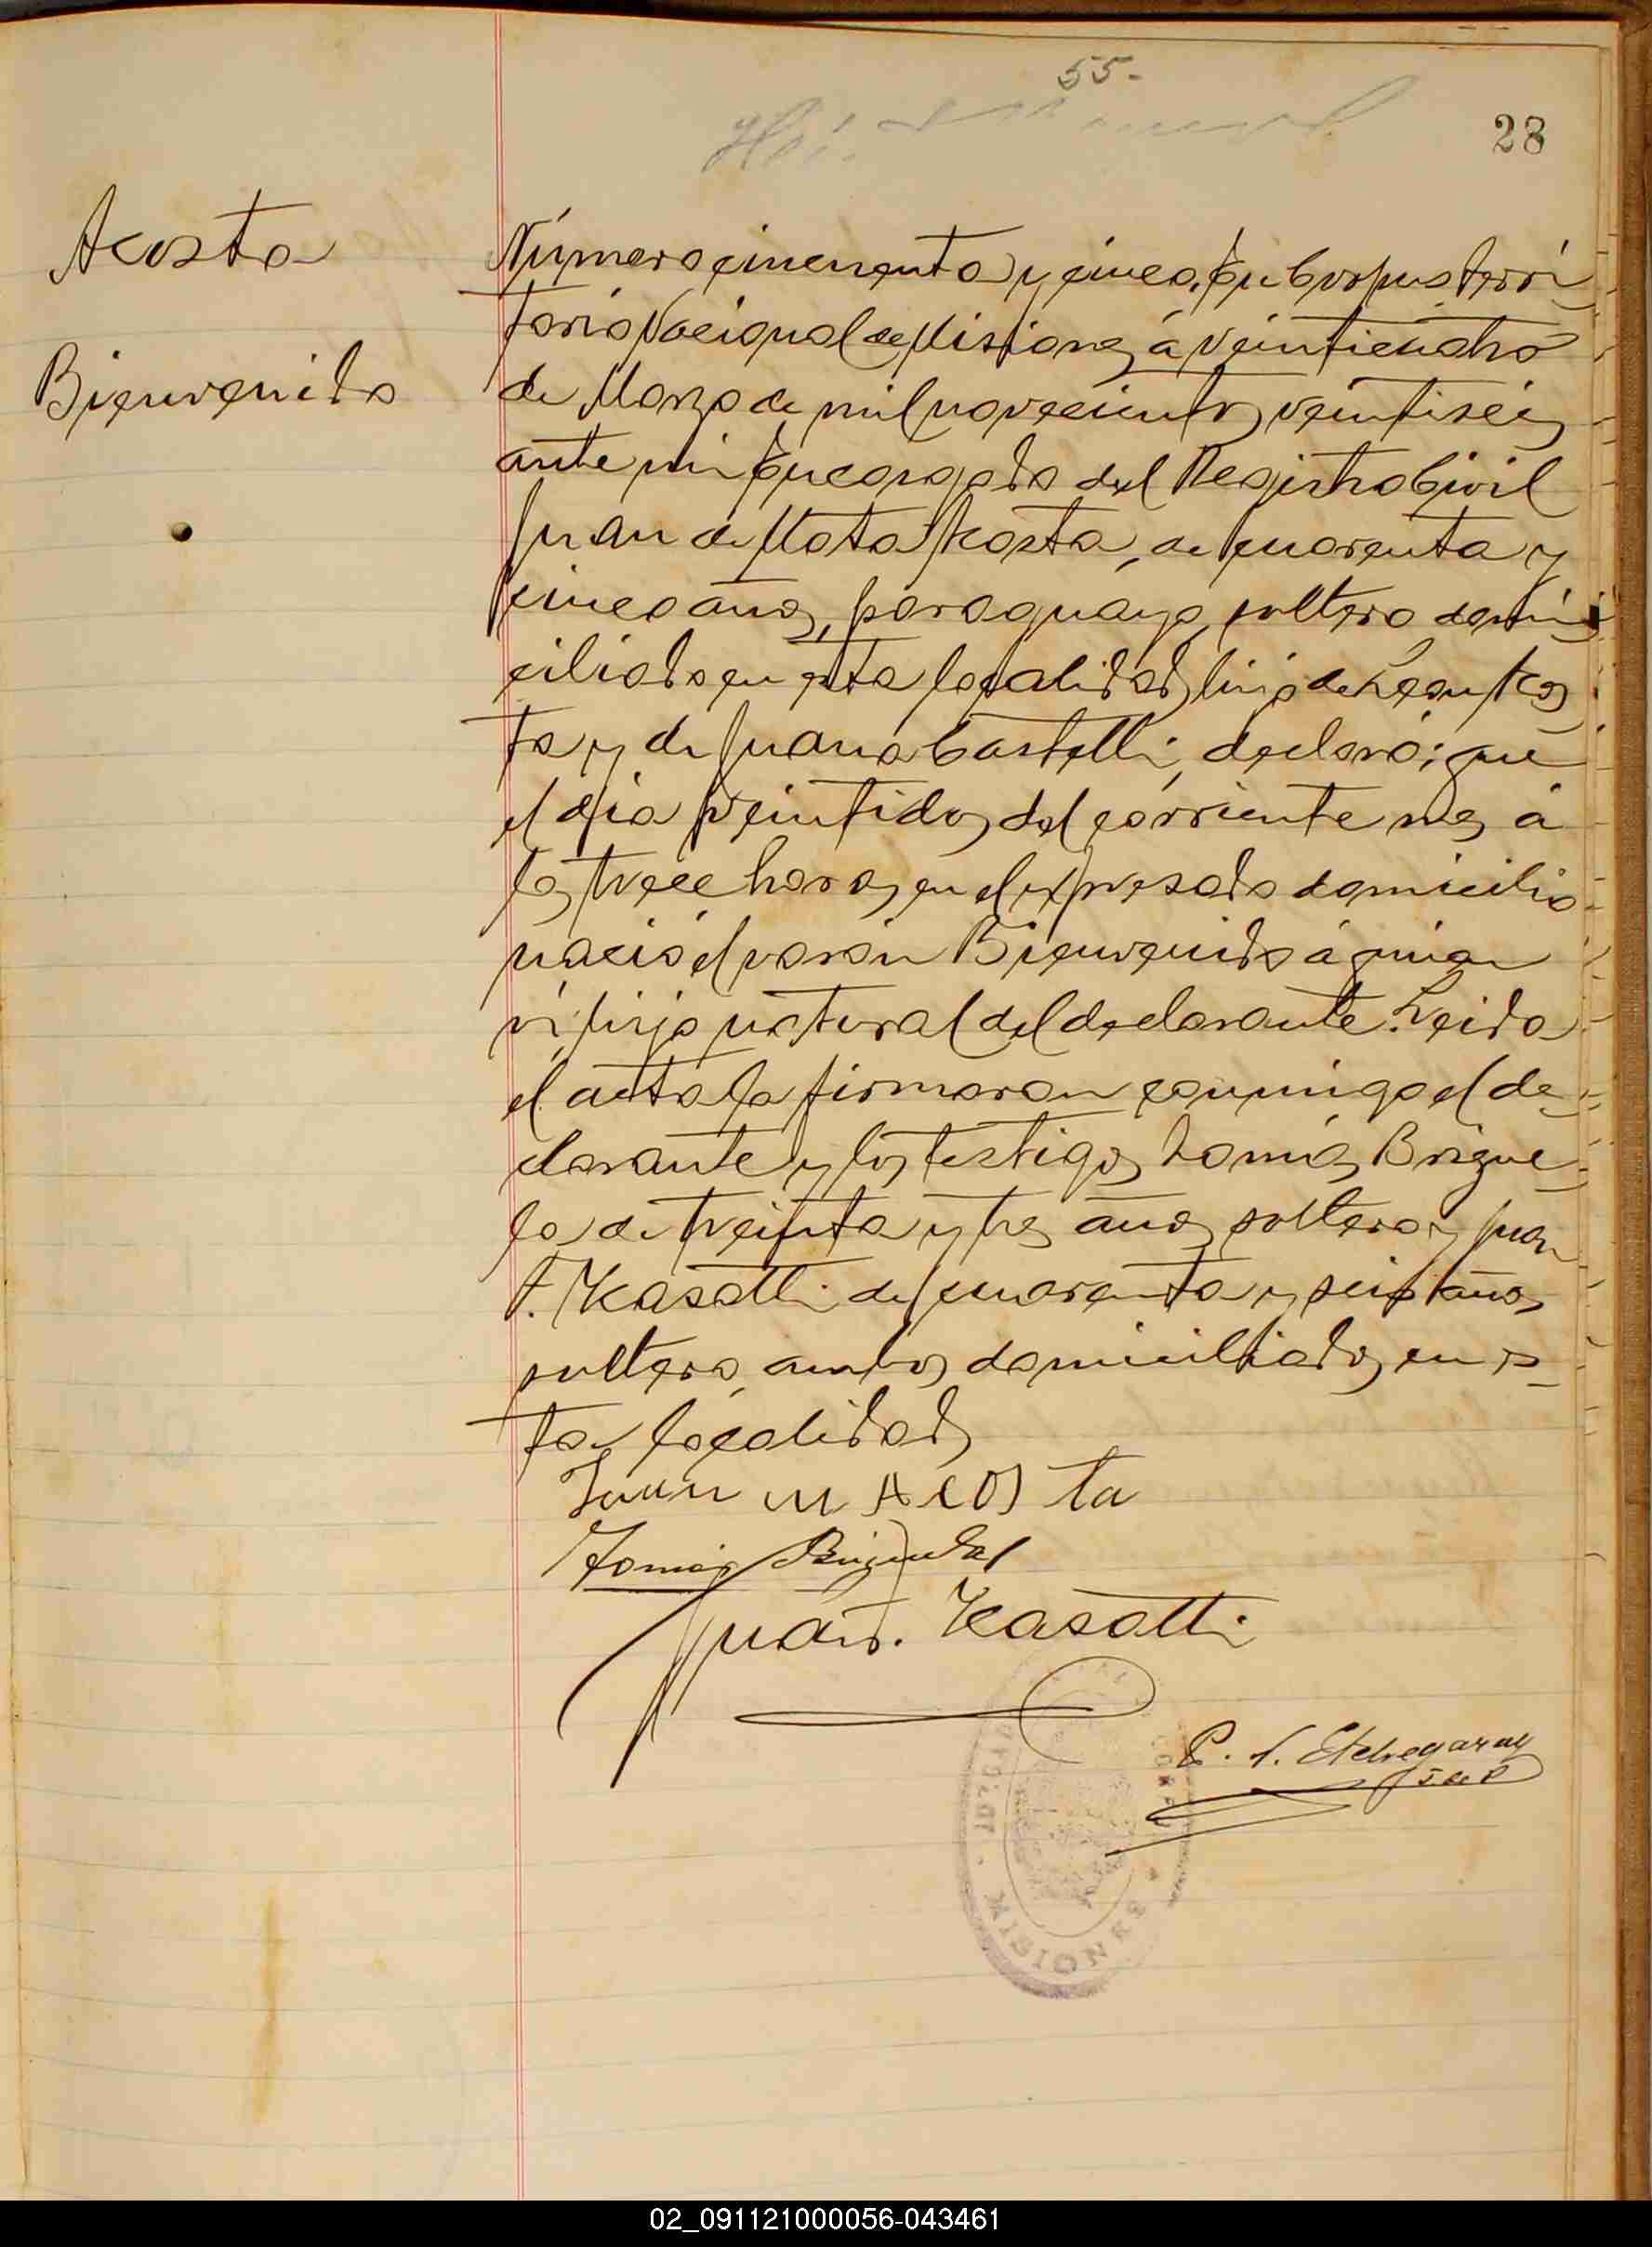 55.-
28
Acosta
Bienvenido
Número cincuenta y cinco, En Corpus Terri
torio Nacional de Misiones, á veinticuatro
de Marzo de mil novecientos veintiseis
ante mi Encargado del Registro Civil
Juan de Mata Acosta, de cuarenta y
cinco años, paraguayo, soltero domi
ciliado en esta localidad, hijo de Leon Acos
ta y de Juana Castelli, declaró; que
el dia veintidos del corriente mes á
las trece horas, en el expresado domicilio
nació el varón Bienvenido á quien
vi, hijo natural del declarante. Leida
el acta la firmaron conmigo el de
clarante y los testigos Tomás Brigue
la de treinta y tres años soltero y Juan
F. Kasatti de cuarenta y seis años
soltero, ambos domiciliados en es
ta localidad
Juan M Acosta
Tomás
Juan F. Kasatti
P. A. Etchegaray
J de P
JUZGADO
CORPUS
MISIONES
02_091121000056-043461